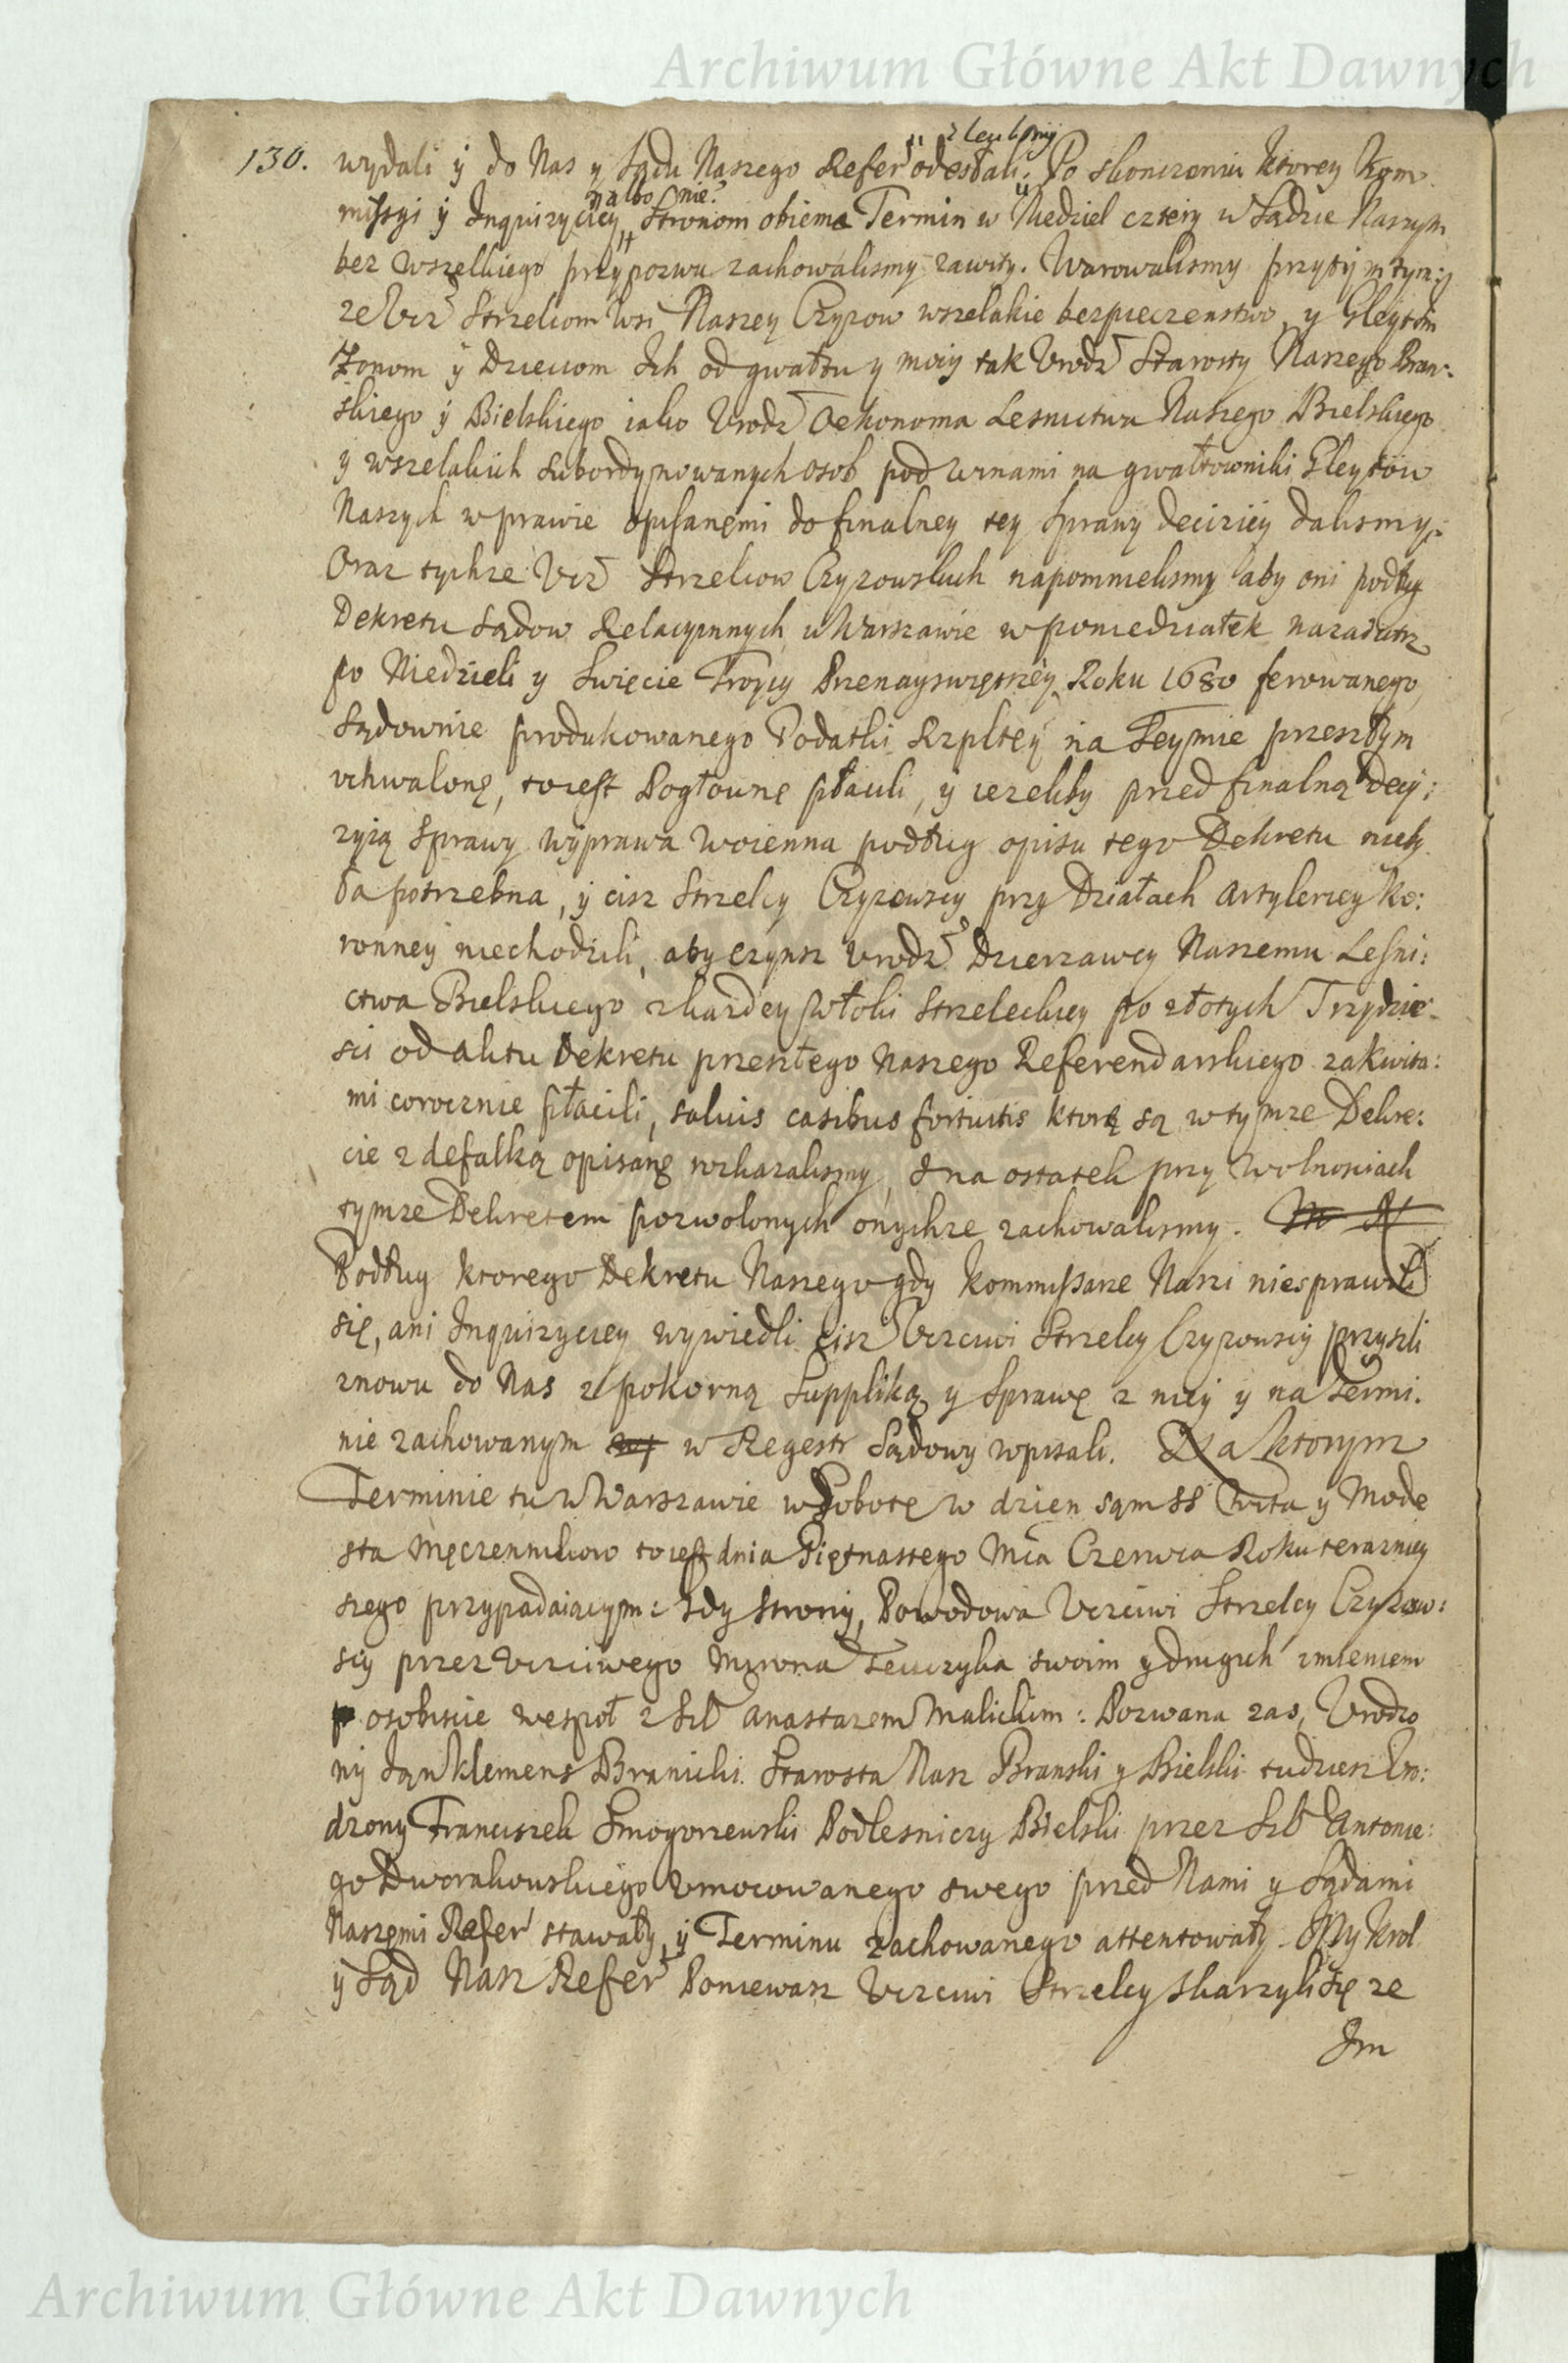 Archiwum Główne Akt Dawnych
130.
zlecilismy
wydali ÿ do Nas y Sądu Naszego Refer odesłali; Po skonczeniu ktorey Kom
albo nie?
missyi ÿ Inquizyciey Stronom obiema Termin w Niedziel cztery w Sądzie Naszym
bez wszelkiego przypozwu zachowalismy zawity. Warowalismy przytym tym:
ze Ucz Strzelcom Wsi Naszey Czyzow wszelakie bezpieczenstwo, y Gleytem
Zonom ÿ Dzieciom Ich od gwałtu y mocy tak Urodz Starosty Naszego Bran:
skiego ÿ Bielskiego iako Urodz Oekonoma Lesnictwa Naszego Bielskiego
y wszelakich Subordynowanych osob pod winami na gwałtowniki Gleytow
Naszych w prawie opisanęmi do finalney tey Sprawy deciziey dalismy;
Oraz tychze Ucz Strzelcow Czyzowskich napomnielismy aby oni podług
Dekretu Sądow Relacyinnych w Warszawie w poniedziałek nazaiutrz
po Niedzieli y Swięcie Troycy Przenayswiętszey Roku 1680 ferowanego,
Sądownie produkowanego Podatki Rzpltey na Seymie przeszłym
uchwalonę, toiest Pogłownę płacili, ÿ iezeliby przed finalną decÿ:
zyią Sprawy wÿprawa Woienna podług opisu tego Dekretu nieby
ła potrzebna, ÿ cisz Strzelcy Czyzowscy przy Działach Artylerieÿ Ko:
ronneÿ niechodzili, aby czynsz Urodz Dzierzawcy Naszemu Leśni:
ctwa Bielskiego z kazdey Włoki Strzeleckiey po złotych Trzydzie-
sci od aktu Dekretu przeszłego Naszego Referendarskiego za kwita:
mi corocznie płacili, salvis casibus fortuitis ktorę są w tymze Dekre:
cie z defalką opisanę rozkazalismy, A na ostatek przy Wolnosciach
tymze Dekretem pozwolonych onychze zachowalismy.
Podług ktorego Dekretu Naszego gdy Kommissarze Nasi niesprawili
się, ani Inquizyciey wywiedli cisz Uczciwi Strzelcy Czyzowscy przyszli
znowu do Nas z pokorną Suppliką y Sprawę z nieÿ y na Termi.
nie zachowanym w Regestr Sądowy wpisali. Na ktorym
Terminie tu w Warszawie w Sobotę w dzien sąm SS Wita y Mode
sta Męczennikow toiest dnia Piętnastego Mca Czerwca Roku terazniey
szego przypadaiącym: Gdy Strony, Powodowa Uczciwi Strzelcy Czyzow:
scy przez Uczciwego swoim y drugich imieniem
osobiscie wespoł z Szl Anastazem Malickim: Pozwana zas, Urodzo
nÿ Jąn Klemens Branicki Starosta Nasz Branski y Bielski tudziesz Uro:
dzony Franciszek Smogorzewski Podlesniczy Bielski przez Szl Antonie:
go Dworakowskiego Umocowanego swego przed Nami y Sądami
Naszęmi Refer stawały, ÿ Terminu zachowanego attentowały. My Krol
ÿ Sąd Nasz Refer Poniewasz Uczciwi Strzelcy skarzyli się ze
Im
Archiwum Główne Akt Dawnych